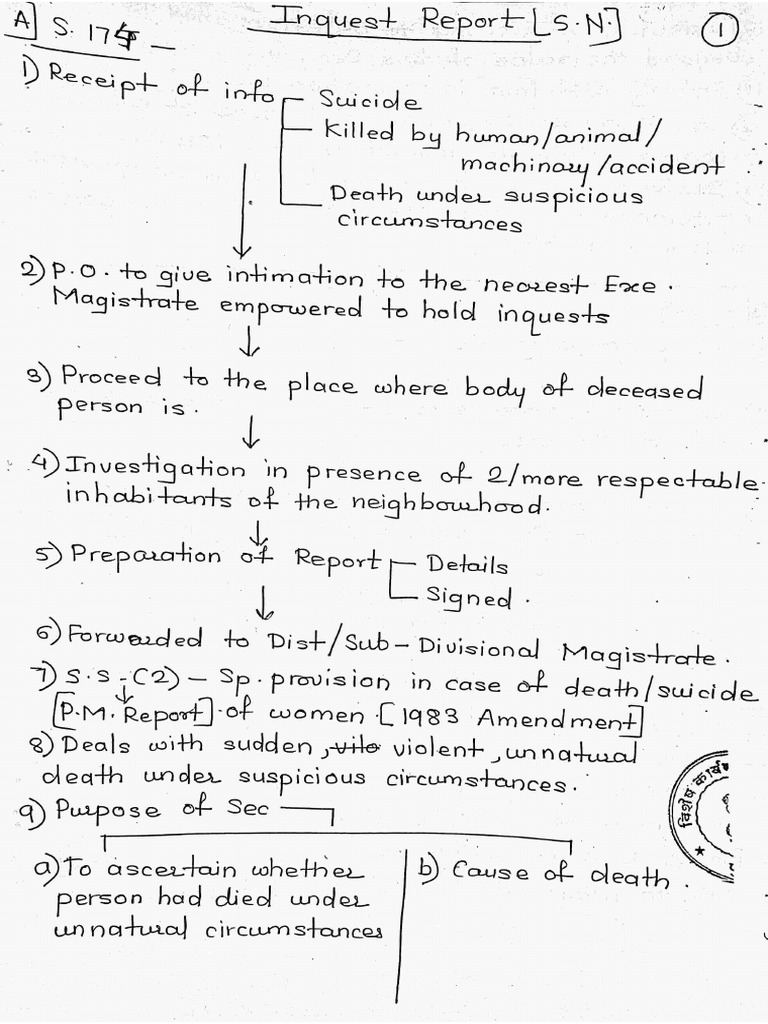 Inquest Report [S.N.]
1
A] S. 174 —
1) Receipt of info
Suicide
Killed by human/animal/
machinary/accident
Death under suspicious
circumstances
2) P.O. to give intimation to the nearest Exe.
Magistrate empowered to hold inquests
3) Proceed to the place where body of deceased
person is.
4) Investigation in presence of 2/more respectable
inhabitants of the neighbourhood.
5) Preparation of Report
Details
Signed.
6) Forwarded to Dist/Sub-Divisional Magistrate.
7) S.S-(2) - Sp. provision in case of death/suicide
[P.M. Report] of women [1983 Amendment]
8) Deals with sudden, violent, unnatural
death under suspicious circumstances.
9) Purpose of Sec
a) To ascertain whether
person had died under
unnatural circumstances
b) Cause of death.
विशेष कार्य